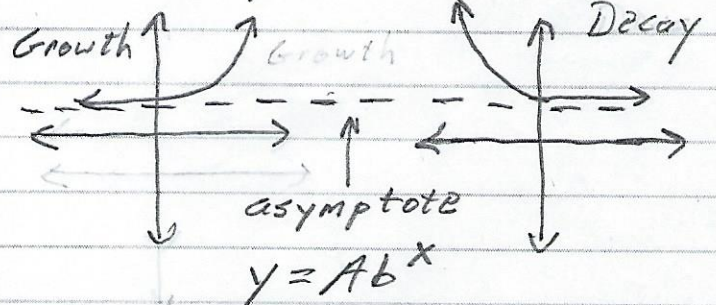 Growth Growth Decay
asymptote
y = Ab^x